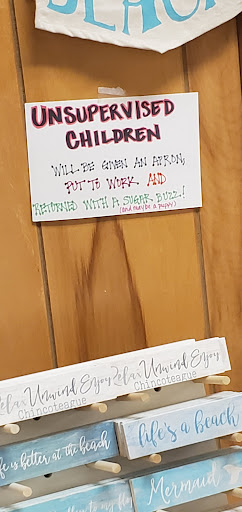 BEACH
UNSUPERVISED
CHILDREN
WILL BE GIVEN AN APRON,
PUT TO WORK AND
RETURNED WITH A SUGAR BUZZ!
(and maybe a puppy)
Relax Unwind Enjoy
Chincoteague
Relax Unwind Enjoy
Chincoteague
life is better at the beach
life's a beach
Mermaid